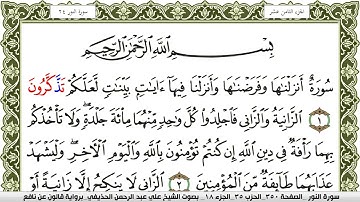 الجزء الثامن عشر
سورة النور ٢٤
بِسْمِ اللَّهِ الرَّحْمَٰنِ الرَّحِيمِ
سُورَةٌ أَنزَلْنَٰهَا وَفَرَضْنَٰهَا وَأَنزَلْنَا فِيهَآ ءَايَٰتٍۢ بَيِّنَٰتٍ لَّعَلَّكُمْ تَذَّكَّرُونَ
١ الزَّانِيَةُ وَالزَّانِي فَاجْلِدُوا كُلَّ وَٰحِدٍ مِّنْهُمَا مِائَةَ جَلْدَةٍ وَلَا تَأْخُذْكُم
بِهِمَا رَأْفَةٌ فِي دِينِ اللَّهِ إِن كُنتُمْ تُؤْمِنُونَ بِاللَّهِ وَالْيَوْمِ الْآخِرِ وَلْيَشْهَدْ
عَذَابَهُمَا طَآئِفَةٌ مِّنَ الْمُؤْمِنِينَ ٢ الزَّانِي لَا يَنكِحُ إِلَّا زَانِيَةً أَوْ
سورة النور الصفحة ٣٥٠ الحزب ٣٥ الجزء ١٨ بصوت الشيخ علي عبد الرحمن الحذيفي برواية قالون عن نافع